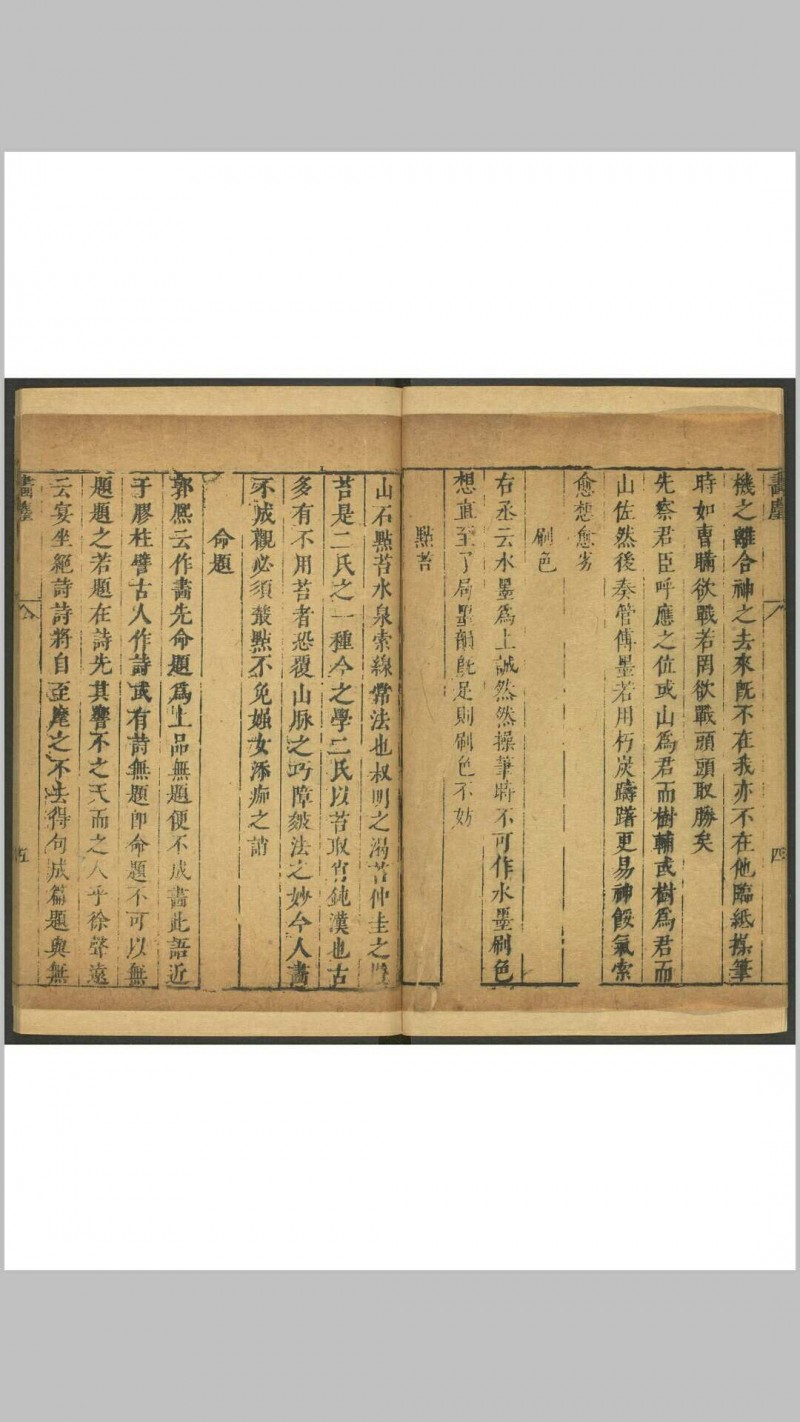 畫麈
四
機之離合神之去來既不在我亦不在他臨紙操筆
時如曹瞞欲戰若罔欲戰頭頭取勝矣
先察君臣呼應之位或山為君而樹輔或樹為君而
山佐然後奏管傅墨若用朽炭躊躇更易神餒氣索
愈想愈劣
刷色
右丞云水墨為上誠然然操筆時不可作水墨刷色
想直至了局墨韻既足則刷色不妨
點苔
山石點苔水泉索線常法也叔明之渴苔仲圭之
苔是二氏之一種今之學二氏以苔取肖鈍漢也古
多有不用苔者恐覆山脉之巧障皴法之妙今人畫
不成觀必須叢點不免媸女添痂之誚
命題
郭熈云作畫先命題為上品無題便不成畫此語近
于膠柱譬古人作詩或有詩無題即命題不可以無
題題之若題在詩先其響不之天而之人乎徐聲遠
云宴坐絕詩詩將自至麾之不去得句成篇題與無
畫麈
五